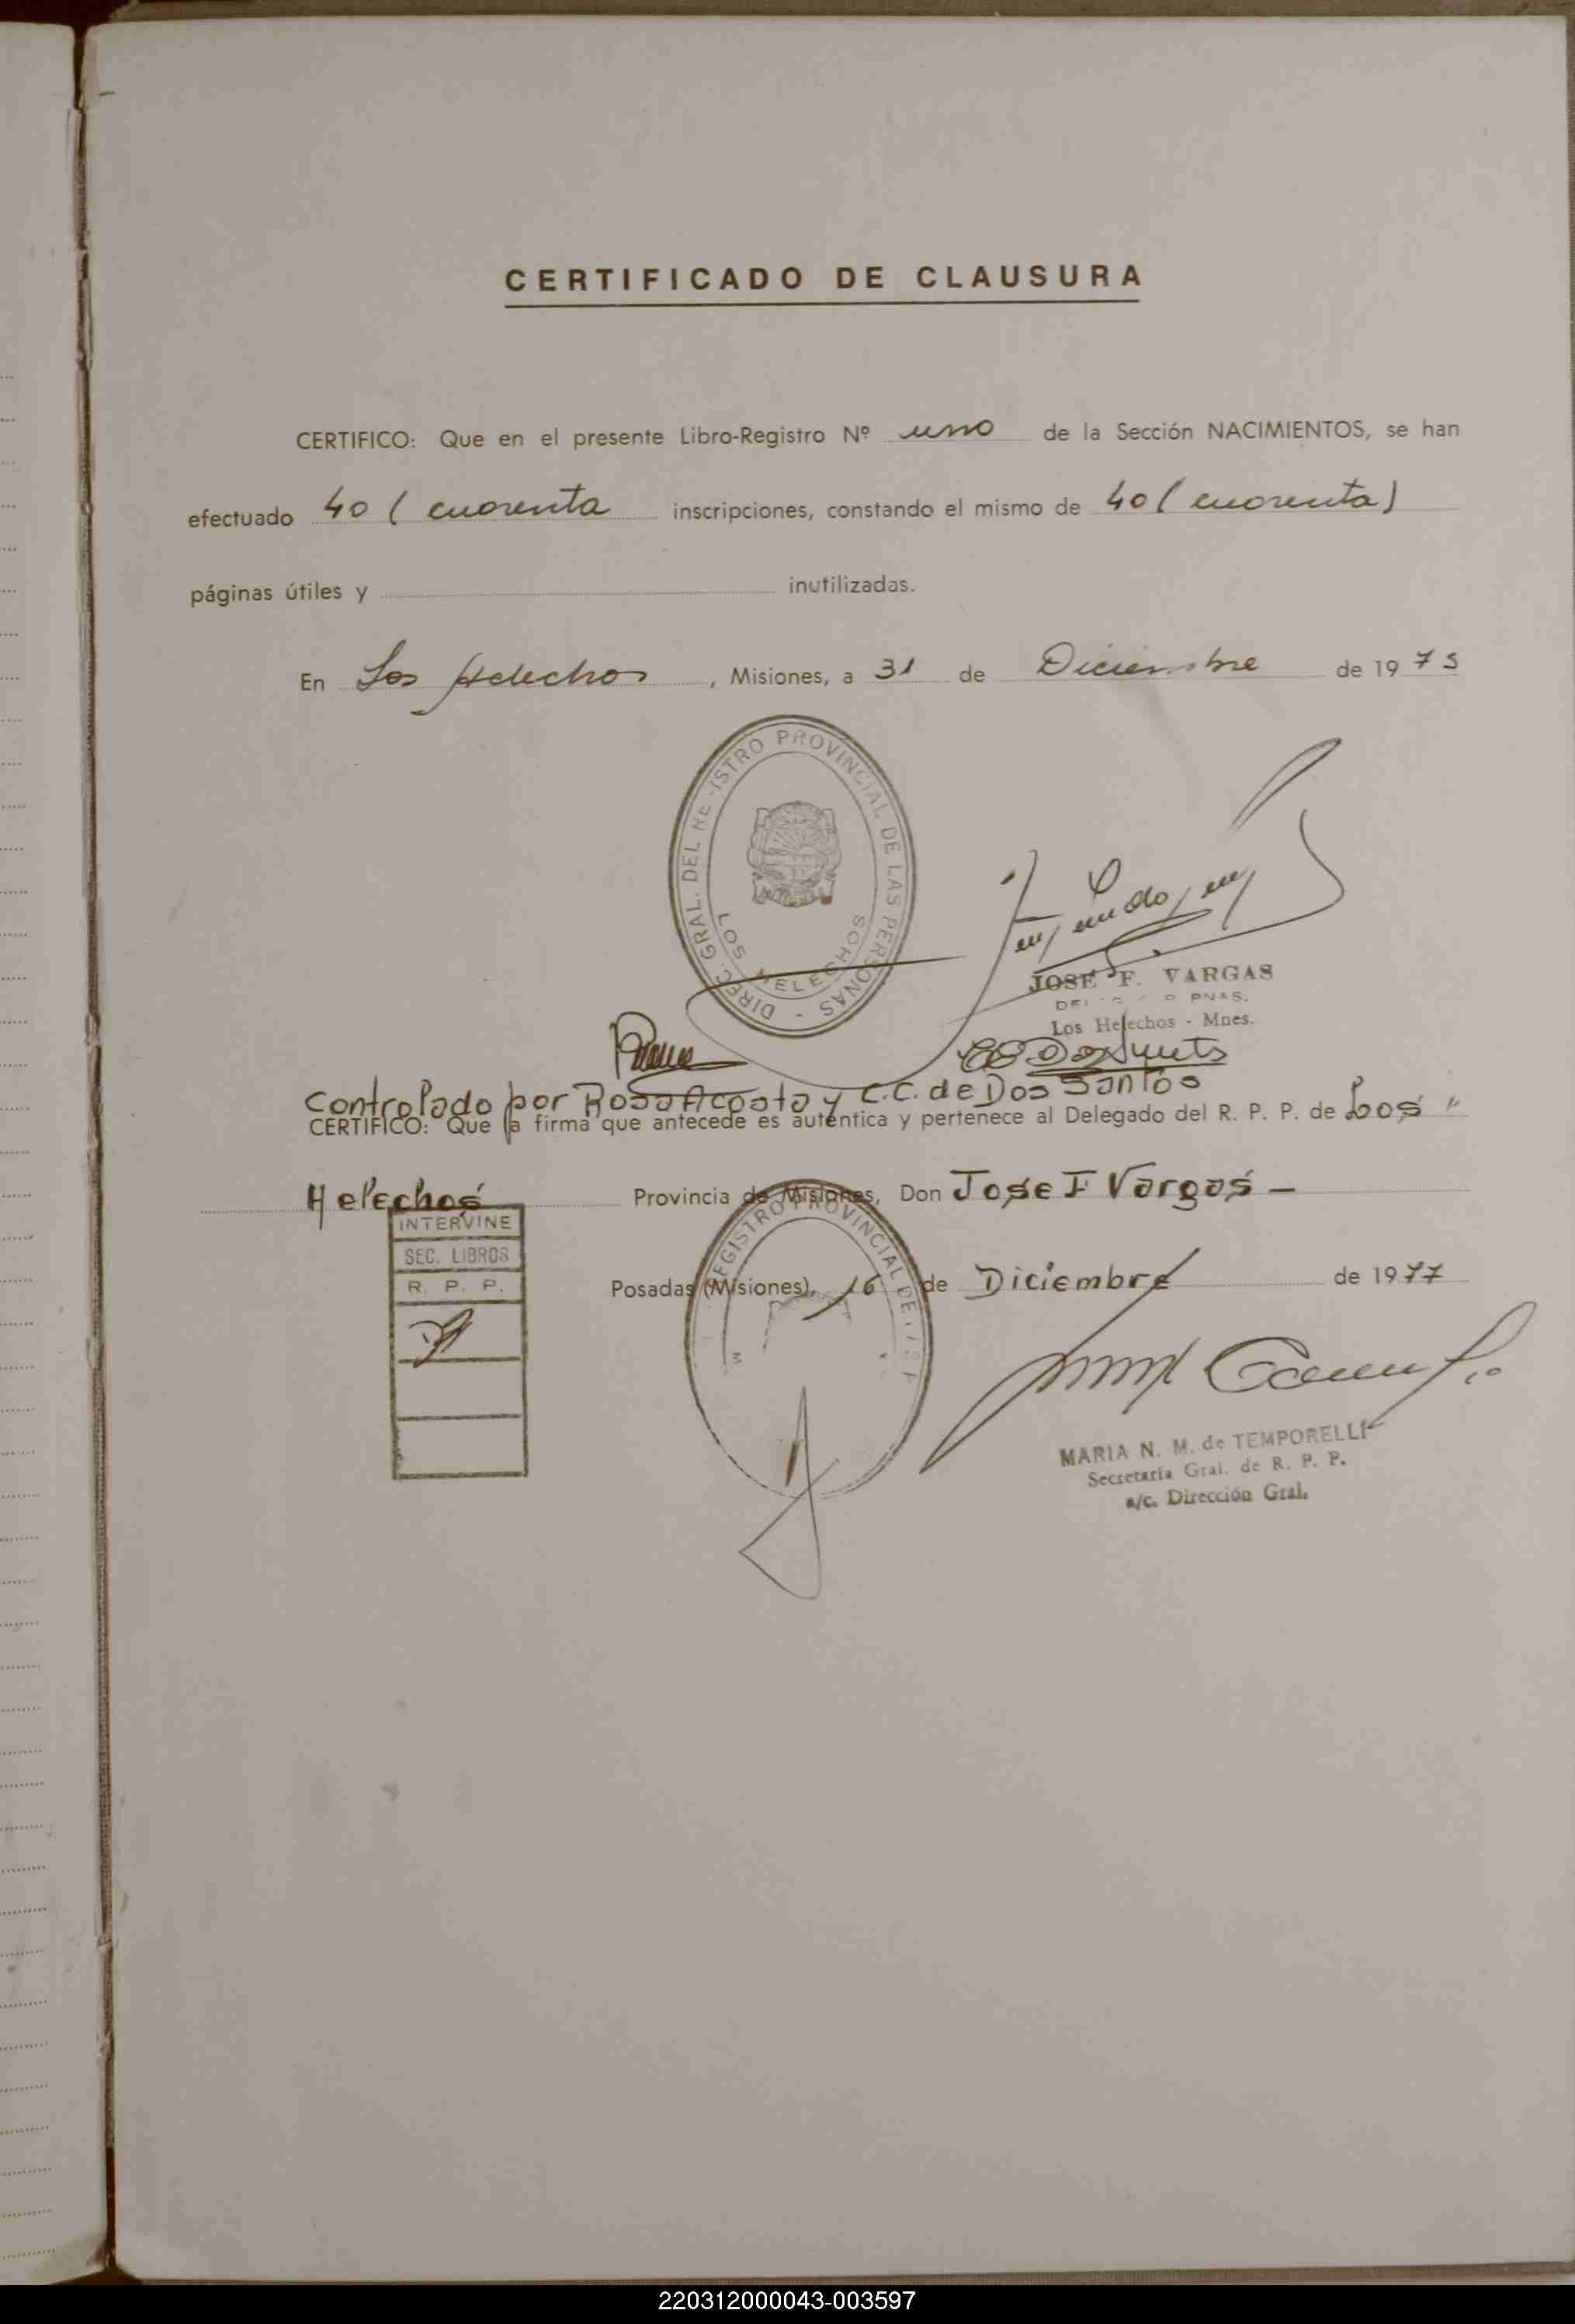 CERTIFICADO DE CLAUSURA
CERTIFICO: Que en el presente Libro-Registro Nº uno de la Sección NACIMIENTOS, se han
efectuado 40 ( cuarenta inscripciones, constando el mismo de 40 ( cuarenta )
páginas útiles y inutilizadas.
En Los Helechos, Misiones, a 31 de Diciembre de 1975
DIREC. GRAL. DEL REGISTRO PROVINCIAL DE LAS PERSONAS -
LOS HELECHOS
JOSE F. VARGAS
Los Helechos - Mnes.
Controlado por Rosa Acosta y C.C. de Dos Santos
CERTIFICO: Que la firma que antecede es auténtica y pertenece al Delegado del R. P. P. de Los "
Helechos Provincia de Misiones, Don Jose F Vargas -
INTERVINE
SEC. LIBROS
R. P. P.
REGISTRO PROVINCIAL DE
Posadas (Misiones), 16 de Diciembre de 1977
MARIA N. M. de TEMPORELLI
Secretaría Gral. de R. P. P.
a/c. Dirección Gral.
220312000043-003597